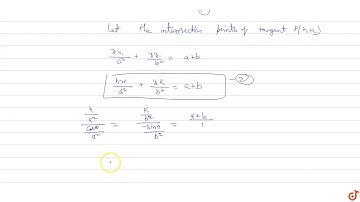 Let the intersection points of tangent P(h,k)
xx₁/a² + yy₁/b² = a+b
hx/a² + yk/b² = a+b — ②
(h/a²)/(cosθ/a²) = (k/b²)/(-sinθ/b²) = (a+b)/1